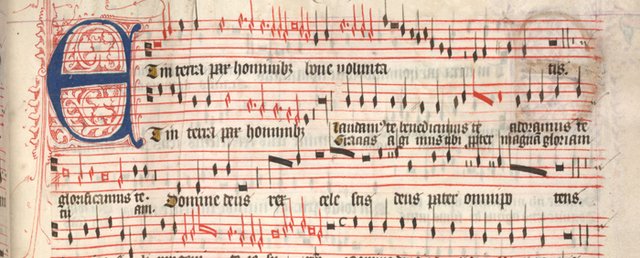 E
Et in terra pax hominibus bone volunta tis.
Et in terra pax hominibus laudamus te benedicimus te adoramus te
Gracias agimus tibi propter magnam gloriam
glorificamus te. Domine deus rex cele stis deus pater omnipo tens.
tu am.